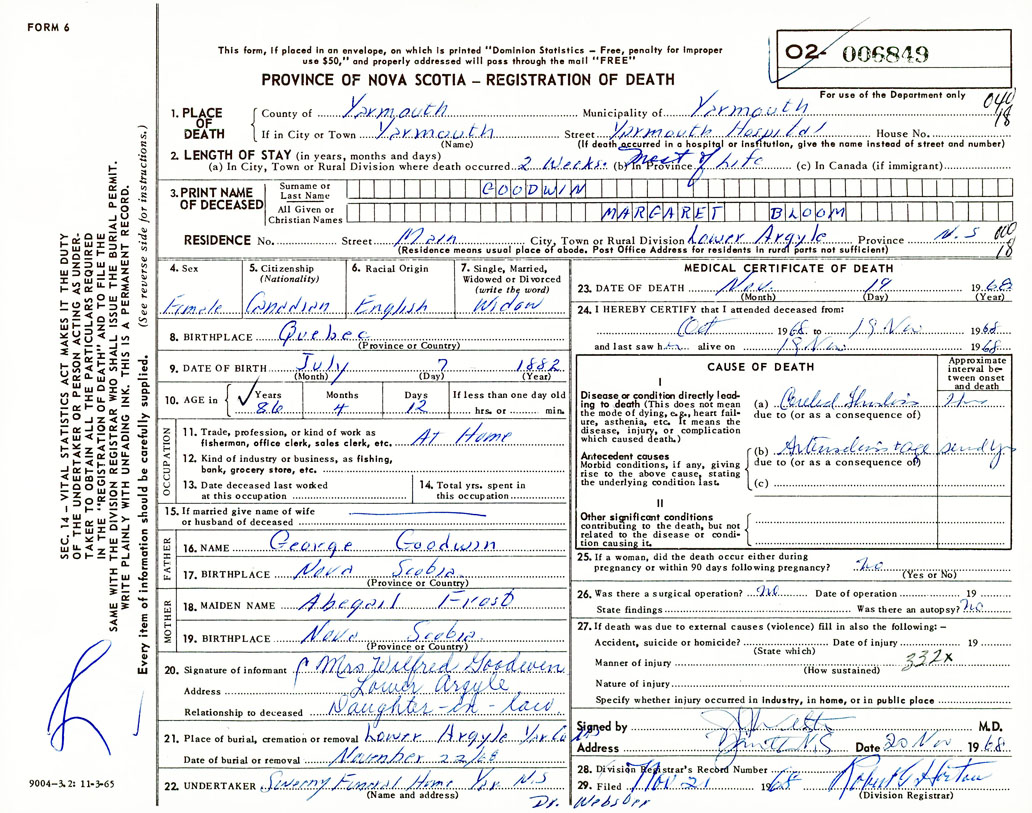 FORM 6
This form, if placed in an envelope, on which is printed "Dominion Statistics – Free, penalty for improper
use $50," and properly addressed will pass through the mail "FREE"
PROVINCE OF NOVA SCOTIA – REGISTRATION OF DEATH
02- 006849
For use of the Department only
040
18
1. PLACE OF DEATH
County of Yarmouth Municipality of Yarmouth
If in City or Town Yarmouth Street Yarmouth Hospital House No.
(Name) (If death occurred in a hospital or institution, give the name instead of street and number)
2. LENGTH OF STAY (in years, months and days)
(a) In City, Town or Rural Division where death occurred 2 Weeks. (b) In Province most of Life (c) In Canada (if immigrant)
3. PRINT NAME OF DECEASED
Surname or Last Name GOODWIN
All Given or Christian Names MARGARET BLOOM
RESIDENCE No. Street Main City, Town or Rural Division Lower Argyle Province N.S
(Residence means usual place of abode. Post Office Address for residents in rural parts not sufficient)
18
4. Sex Female
5. Citizenship (Nationality) Canadian
6. Racial Origin English
7. Single, Married, Widowed or Divorced (write the word) Widow
8. BIRTHPLACE Quebec
(Province or Country)
9. DATE OF BIRTH July 7 1882
(Month) (Day) (Year)
10. AGE in Years 86 Months 4 Days 12 If less than one day old hrs. or min.
OCCUPATION
11. Trade, profession, or kind of work as fisherman, office clerk, sales clerk, etc. At Home
12. Kind of industry or business, as fishing, bank, grocery store, etc.
13. Date deceased last worked at this occupation
14. Total yrs. spent in this occupation
15. If married give name of wife or husband of deceased
FATHER
16. NAME George Goodwin
17. BIRTHPLACE Nova Scotia
(Province or Country)
MOTHER
18. MAIDEN NAME Abegail Frost
19. BIRTHPLACE Nova Scotia
(Province or Country)
20. Signature of informant Mrs Wilfred Goodwin
Address Lower Argyle
Relationship to deceased Daughter-in-law
21. Place of burial, cremation or removal Lower Argyle Yar. Co
Date of burial or removal November 22/68
22. UNDERTAKER Sweeny Funeral Home Yar N.S
(Name and address)
Dr. Webster
MEDICAL CERTIFICATE OF DEATH
23. DATE OF DEATH Nov. 19 1968
(Month) (Day) (Year)
24. I HEREBY CERTIFY that I attended deceased from:
Oct 1968 to 19 Nov 1968
and last saw her alive on 19 Nov 1968
CAUSE OF DEATH
Approximate interval between onset and death
I
Disease or condition directly leading to death (This does not mean the mode of dying, e.g., heart failure, asthenia, etc. It means the disease, injury, or complication which caused death.)
(a)
due to (or as a consequence of)
Antecedent causes
Morbid conditions, if any, giving rise to the above cause, stating the underlying condition last.
(b)
due to (or as a consequence of)
(c)
II
Other significant conditions contributing to the death, but not related to the disease or condition causing it.
25. If a woman, did the death occur either during pregnancy or within 90 days following pregnancy? no
(Yes or No)
26. Was there a surgical operation? no Date of operation 19
State findings Was there an autopsy? no
27. If death was due to external causes (violence) fill in also the following: –
Accident, suicide or homicide? Date of injury 19
(State which)
Manner of injury 332x
(How sustained)
Nature of injury
Specify whether injury occurred in industry, in home, or in public place
Signed by M.D.
Address Date 20 Nov 1968
28. Division Registrar's Record Number
29. Filed Nov 21 1968 Robert G Horton
(Division Registrar)
SEC. 14 – VITAL STATISTICS ACT MAKES IT THE DUTY
OF THE UNDERTAKER OR PERSON ACTING AS UNDER-
TAKER TO OBTAIN ALL THE PARTICULARS REQUIRED
IN THE "REGISTRATION OF DEATH" AND TO FILE THE
SAME WITH THE DIVISION REGISTRAR WHO SHALL ISSUE THE BURIAL PERMIT.
WRITE PLAINLY WITH UNFADING INK. THIS IS A PERMANENT RECORD.
Every item of information should be carefully supplied. (See reverse side for instructions.)
9004-3.2: 11-3-65